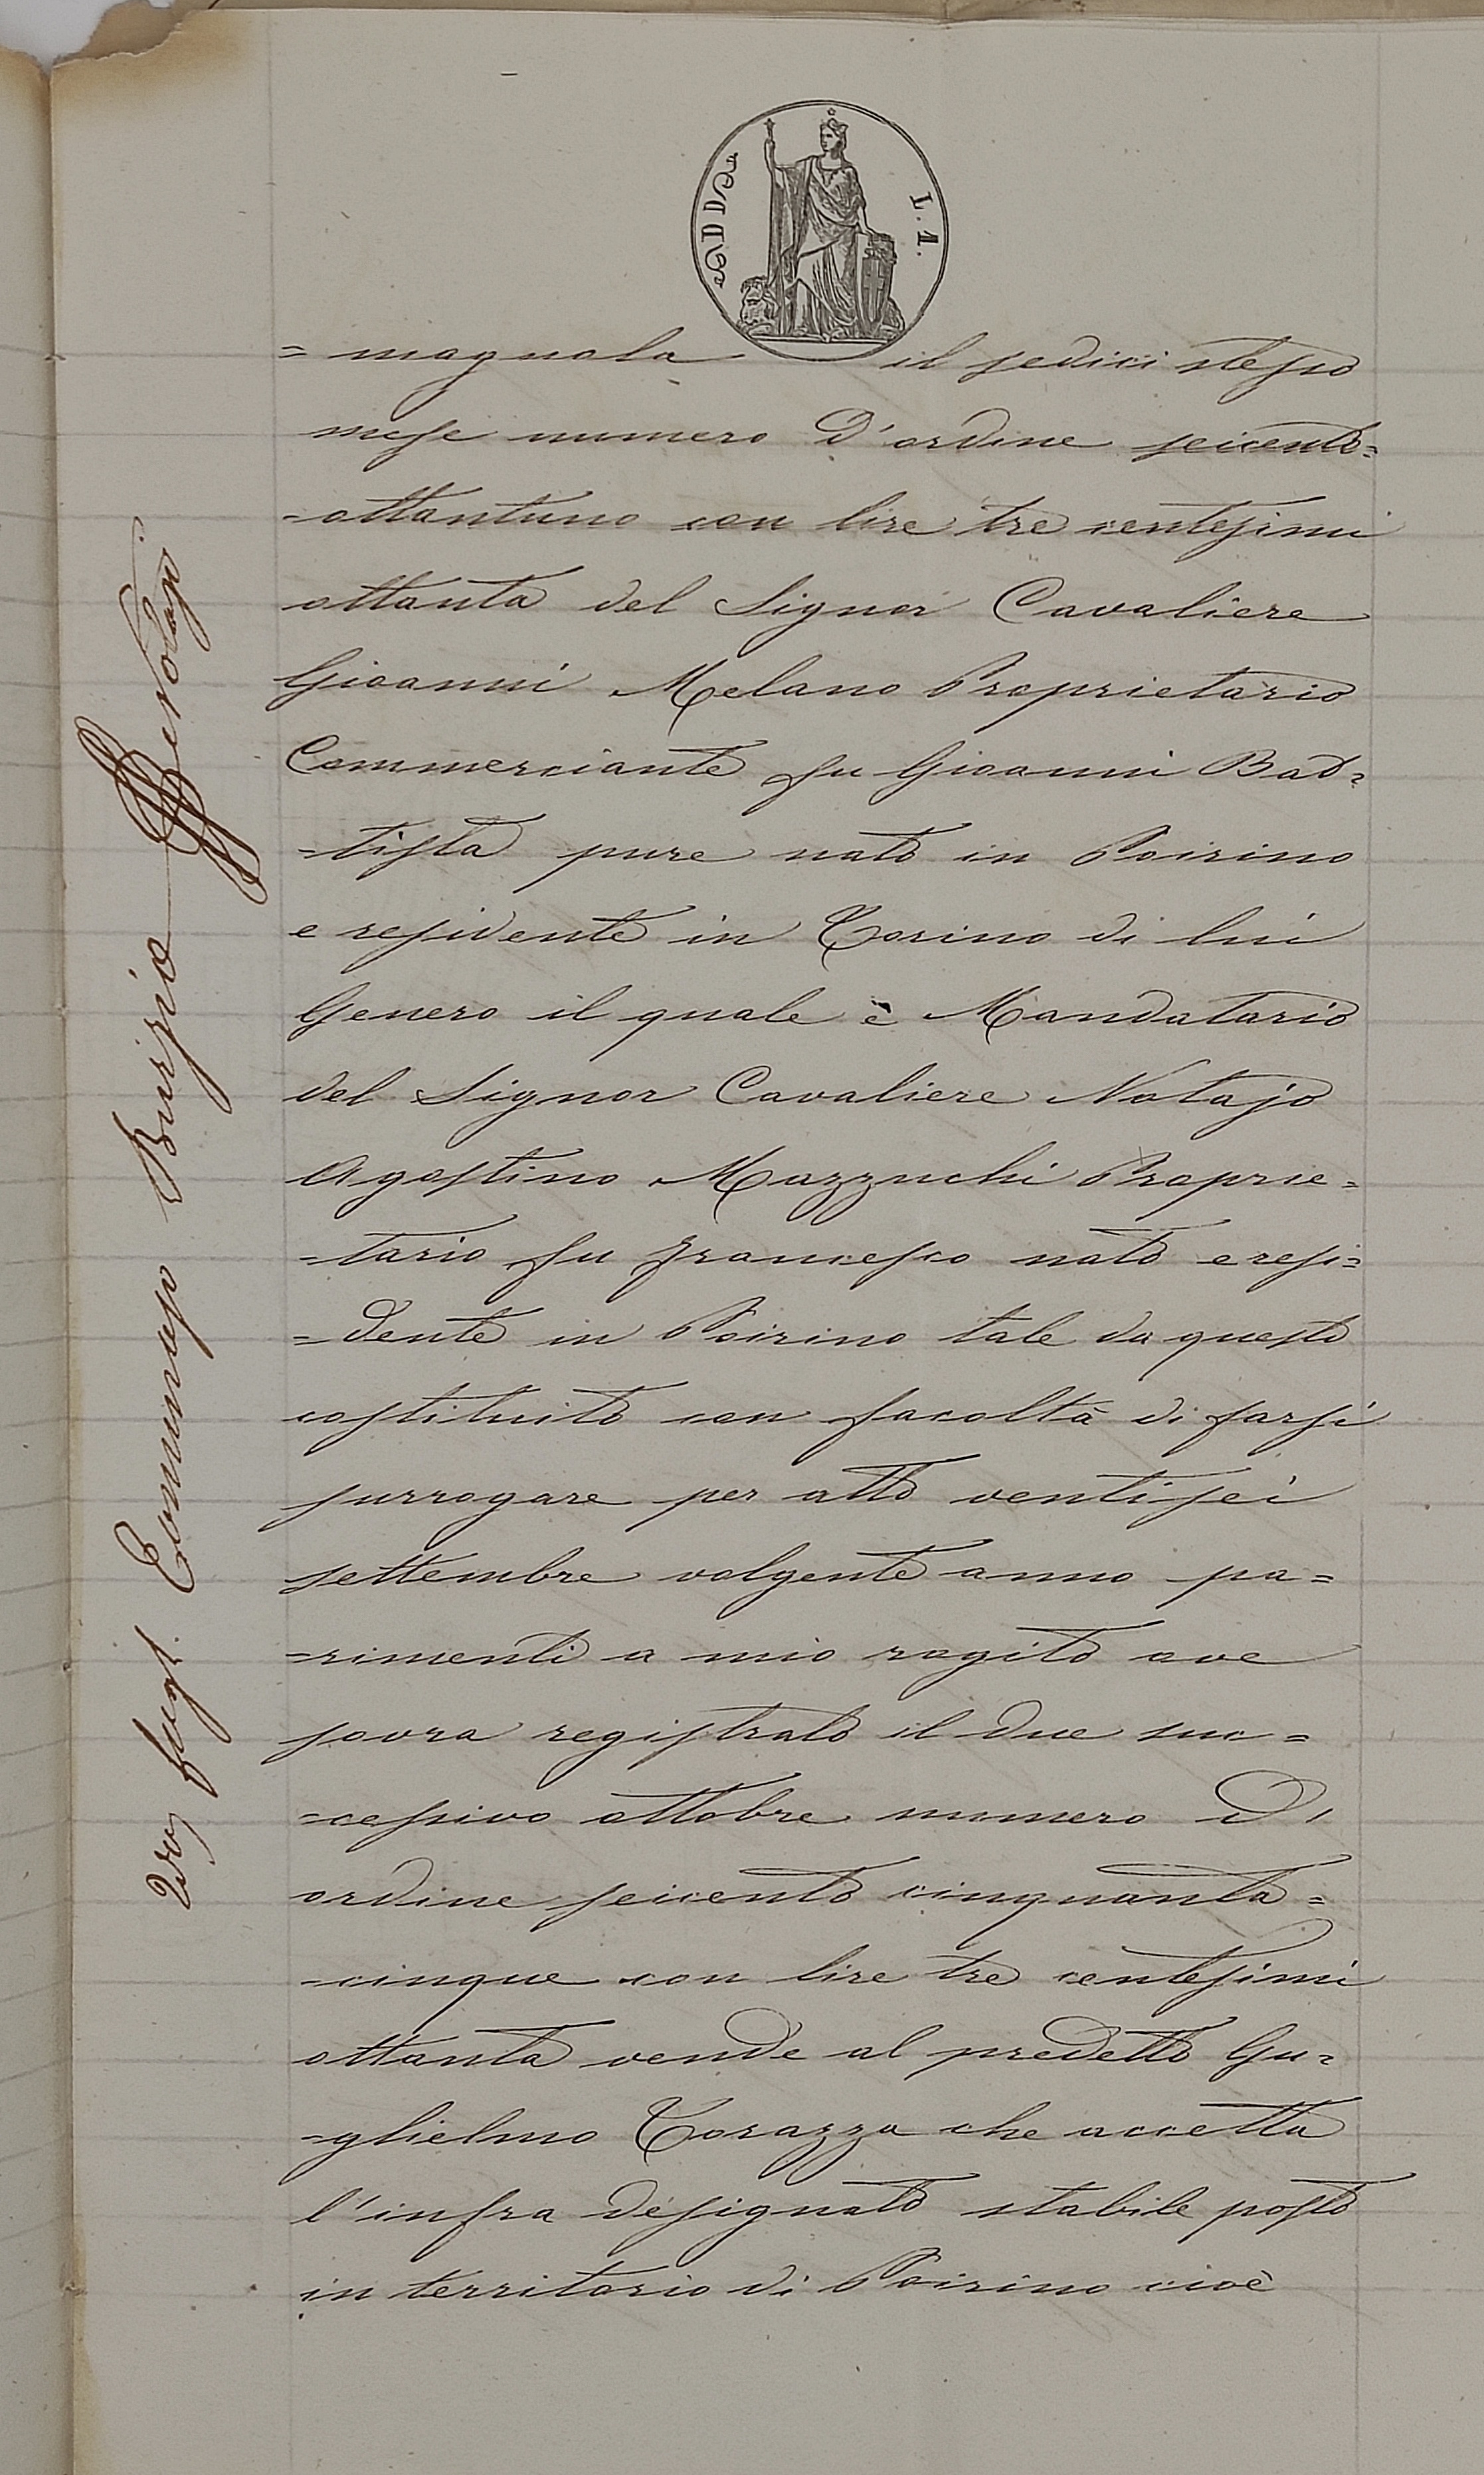 L. 1.
= magnola il sedici stesso
mese numero d'ordine seicento=
=ottantuno con lire tre centesimi
ottanta del Signor Cavaliere
Gioanni Melano Proprietario
Commerciante fu Gioanni Bat=
=tista pure nato in Poirino
e residente in Torino di lui
Genero il quale è Mandatario
del Signor Cavaliere Notajo
Agostino Mazzuchi Proprie=
=tario fu Francesco nato e resi=
=dente in Poirino tale da questo
costituito con facoltà di farsi
surrogare per atto ventisei
settembre volgente anno pa=
=rimenti a mio rogito ove
sovra registrato il due suc=
=cessivo ottobre numero d'
ordine seicento cinquanta=
=cinque con lire tre centesimi
ottanta vende al predetto Gu=
=glielmo Torazza che accetta
l'infra designato stabile posto
in territorio di Poirino cioè
Burzio